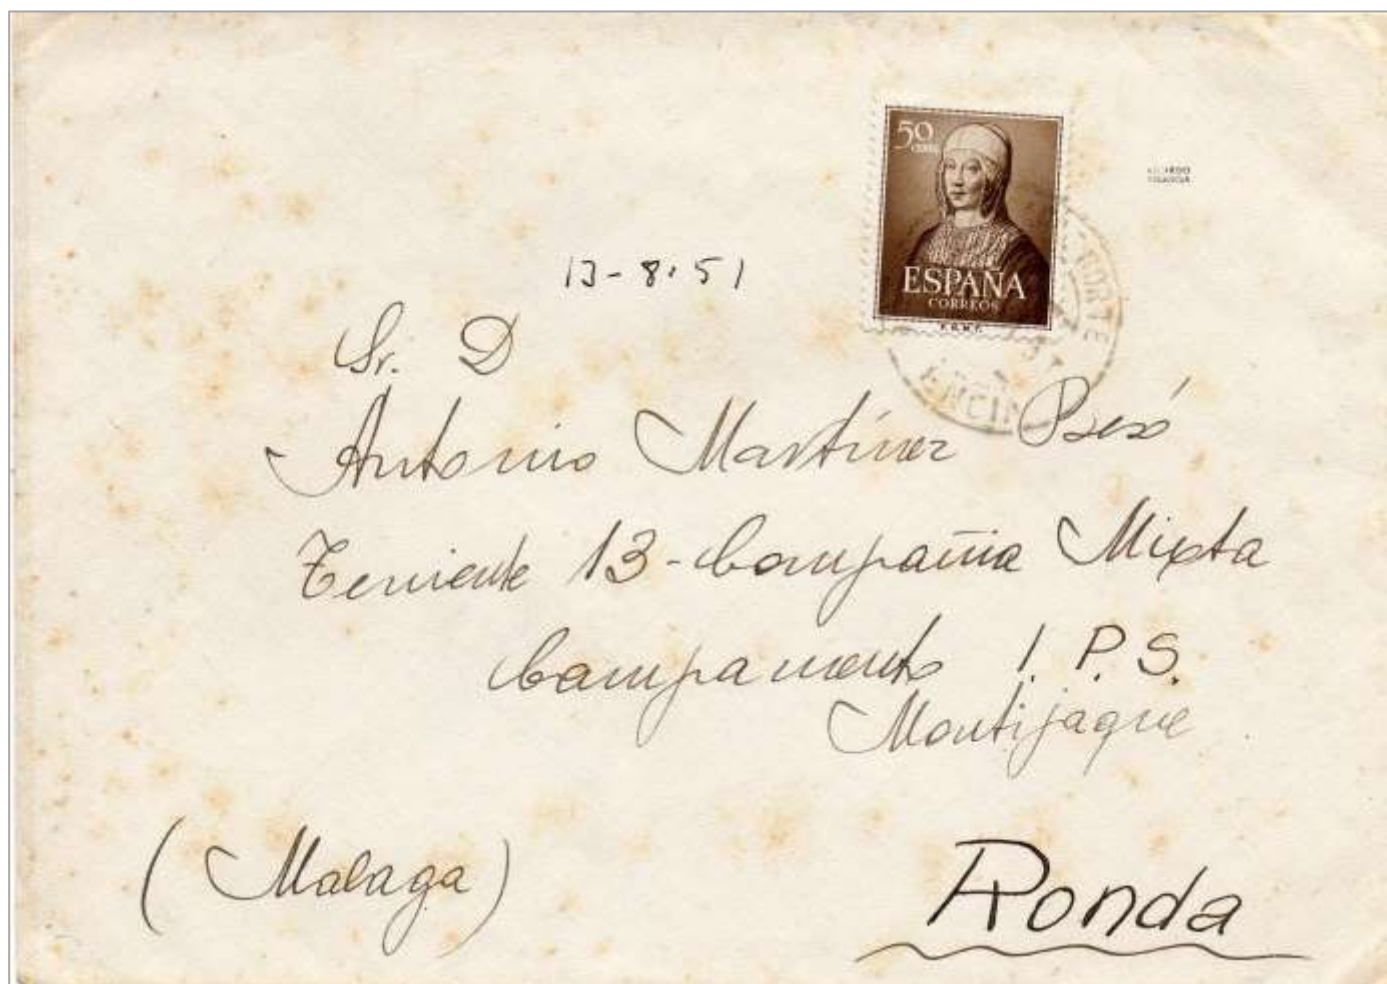 50
CENTS
ESPAÑA
CORREOS
F.N.M.T.
13-8-51
Sr. D
Antonio Martínez
Teniente 13-Compañia Mixta
Campamento I. P. S.
Montijaque
(Malaga)
Ronda